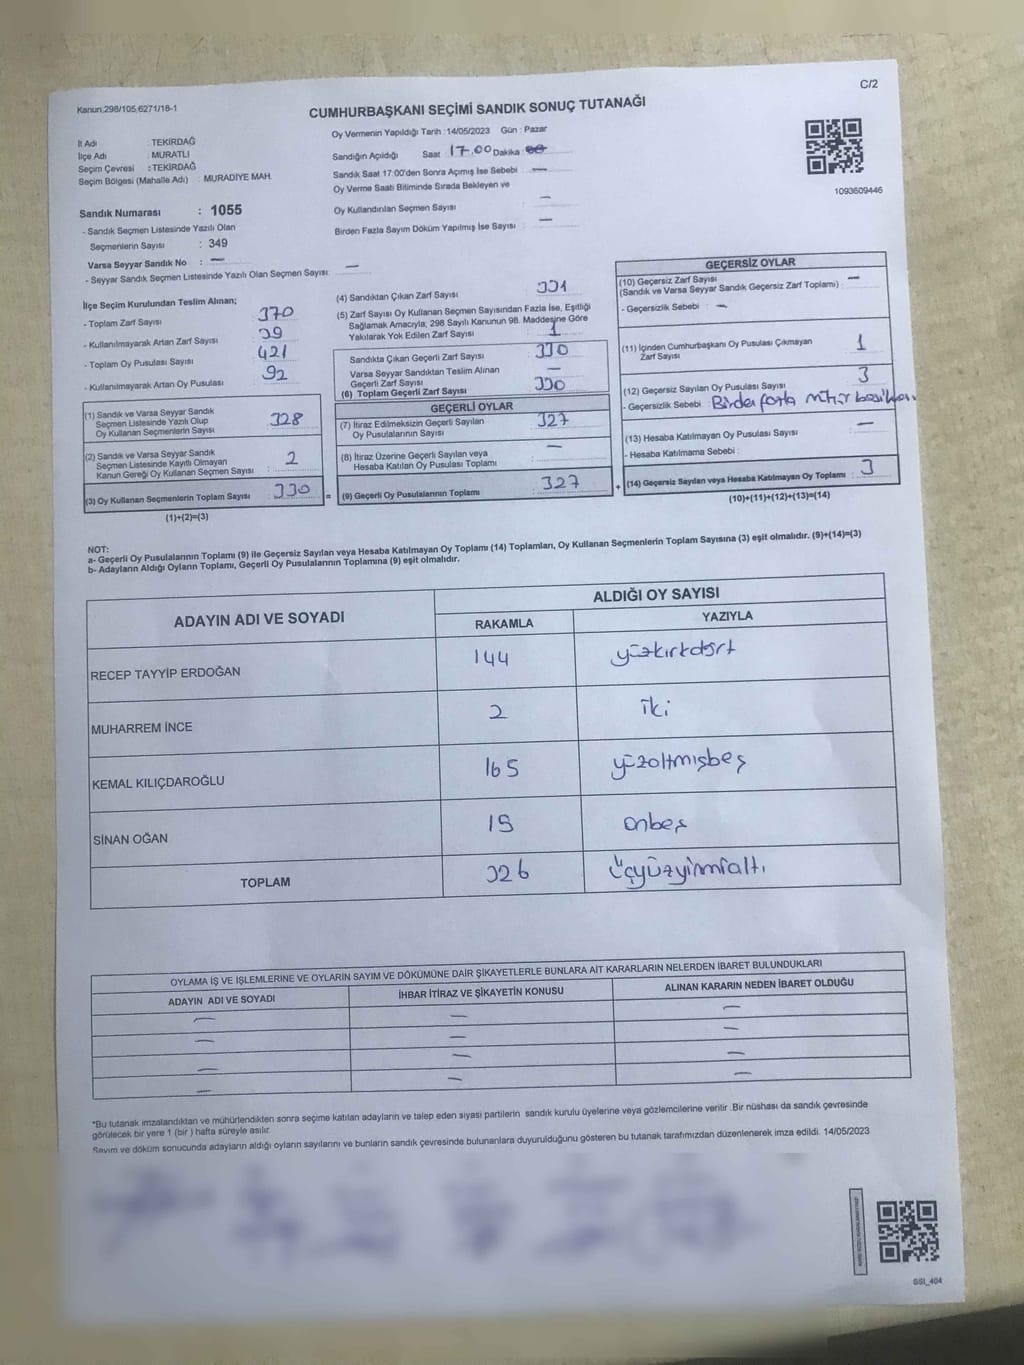 Kanun:298/105,6271/18-1
C/2
CUMHURBAŞKANI SEÇİMİ SANDIK SONUÇ TUTANAĞI
İl Adı : TEKİRDAĞ
İlçe Adı : MURATLI
Seçim Çevresi : TEKİRDAĞ
Seçim Bölgesi (Mahalle Adı) : MURADİYE MAH.
Sandık Numarası : 1055
- Sandık Seçmen Listesinde Yazılı Olan
Seçmenlerin Sayısı : 349
Varsa Seyyar Sandık No : —
- Seyyar Sandık Seçmen Listesinde Yazılı Olan Seçmen Sayısı: —
Oy Vermenin Yapıldığı Tarih : 14/05/2023 Gün : Pazar
Sandığın Açıldığı Saat 17.00 Dakika
Sandık Saat 17:00'den Sonra Açımış İse Sebebi : —
Oy Verme Saati Bitiminde Sırada Bekleyen ve
Oy Kullandırılan Seçmen Sayısı —
Birden Fazla Sayım Döküm Yapılmış İse Sayısı : —
1093609446
İlçe Seçim Kurulundan Teslim Alınan;
- Toplam Zarf Sayısı 370
- Kullanılmayarak Artan Zarf Sayısı 39
- Toplam Oy Pusulası Sayısı 421
- Kullanılmayarak Artan Oy Pusulası 92
(1) Sandık ve Varsa Seyyar Sandık
Seçmen Listesinde Yazılı Olup
Oy Kullanan Seçmenlerin Sayısı 328
(2) Sandık ve Varsa Seyyar Sandık
Seçmen Listesinde Kayıtlı Olmayan
Kanun Gereği Oy Kullanan Seçmen Sayısı 2
(3) Oy Kullanan Seçmenlerin Toplam Sayısı 330 =
(1)+(2)=(3)
(4) Sandıktan Çıkan Zarf Sayısı 331
(5) Zarf Sayısı Oy Kullanan Seçmen Sayısından Fazla İse, Eşitliği
Sağlamak Amacıyla, 298 Sayılı Kanunun 98. Maddesine Göre
Yakılarak Yok Edilen Zarf Sayısı 1
Sandıkta Çıkan Geçerli Zarf Sayısı 330
Varsa Seyyar Sandıktan Teslim Alınan
Geçerli Zarf Sayısı —
(6) Toplam Geçerli Zarf Sayısı 330
GEÇERLİ OYLAR
(7) İtiraz Edilmeksizin Geçerli Sayılan
Oy Pusulalarının Sayısı 327
(8) İtiraz Üzerine Geçerli Sayılan veya
Hesaba Katılan Oy Pusulası Toplamı —
(9) Geçerli Oy Pusulalarının Toplamı 327 +
GEÇERSİZ OYLAR
(10) Geçersiz Zarf Sayısı
(Sandık ve Varsa Seyyar Sandık Geçersiz Zarf Toplamı) : —
- Geçersizlik Sebebi : —
(11) İçinden Cumhurbaşkanı Oy Pusulası Çıkmayan
Zarf Sayısı 1
(12) Geçersiz Sayılan Oy Pusulası Sayısı 3
- Geçersizlik Sebebi : Birden fazla mühür
(13) Hesaba Katılmayan Oy Pusulası Sayısı —
- Hesaba Katılmama Sebebi :
(14) Geçersiz Sayılan veya Hesaba Katılmayan Oy Toplamı : 3
(10)+(11)+(12)+(13)=(14)
NOT:
a- Geçerli Oy Pusulalarının Toplamı (9) ile Geçersiz Sayılan veya Hesaba Katılmayan Oy Toplamı (14) Toplamları, Oy Kullanan Seçmenlerin Toplam Sayısına (3) eşit olmalıdır. (9)+(14)=(3)
b- Adayların Aldığı Oyların Toplamı, Geçerli Oy Pusulalarının Toplamına (9) eşit olmalıdır.
ADAYIN ADI VE SOYADI ALDIĞI OY SAYISI
RAKAMLA YAZIYLA
RECEP TAYYİP ERDOĞAN 144 yüzkırkdört
MUHARREM İNCE 2 İki
KEMAL KILIÇDAROĞLU 165 yüzaltmışbeş
SİNAN OĞAN 15 onbeş
TOPLAM 326 Üçyüzyirmialtı
OYLAMA İŞ VE İŞLEMLERİNE VE OYLARIN SAYIM VE DÖKÜMÜNE DAİR ŞİKAYETLERLE BUNLARA AİT KARARLARIN NELERDEN İBARET BULUNDUKLARI
ADAYIN ADI VE SOYADI İHBAR İTİRAZ VE ŞİKAYETİN KONUSU ALINAN KARARIN NEDEN İBARET OLDUĞU
— — —
— — —
— — —
— — —
*Bu tutanak imzalandıktan ve mühürlendikten sonra seçime katılan adayların ve talep eden siyasi partilerin sandık kurulu üyelerine veya gözlemcilerine verilir .Bir nüshası da sandık çevresinde
görülecek bir yere 1 (bir ) hafta süreyle asılır.
Sayım ve döküm sonucunda adayların aldığı oyların sayılarını ve bunların sandık çevresinde bulunanlara duyurulduğunu gösteren bu tutanak tarafımızdan düzenlenerek imza edildi. 14/05/2023
GSI_404